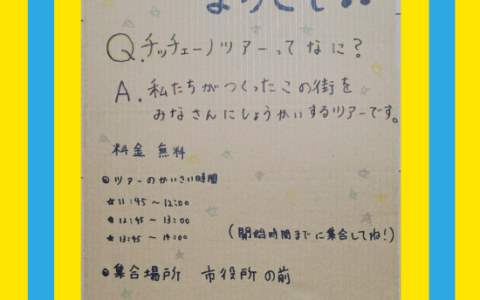 Q.チッチェーノツアーってなに?
A.私たちがつくったこの街を
みなさんにしょうかいするツアーです。
料金 無料
◎ツアーのかいさい時間
★11:45〜12:00
★12:45〜13:00
★13:45〜14:00 (開始時間までに集合してね!)
◎集合場所 市役所の前